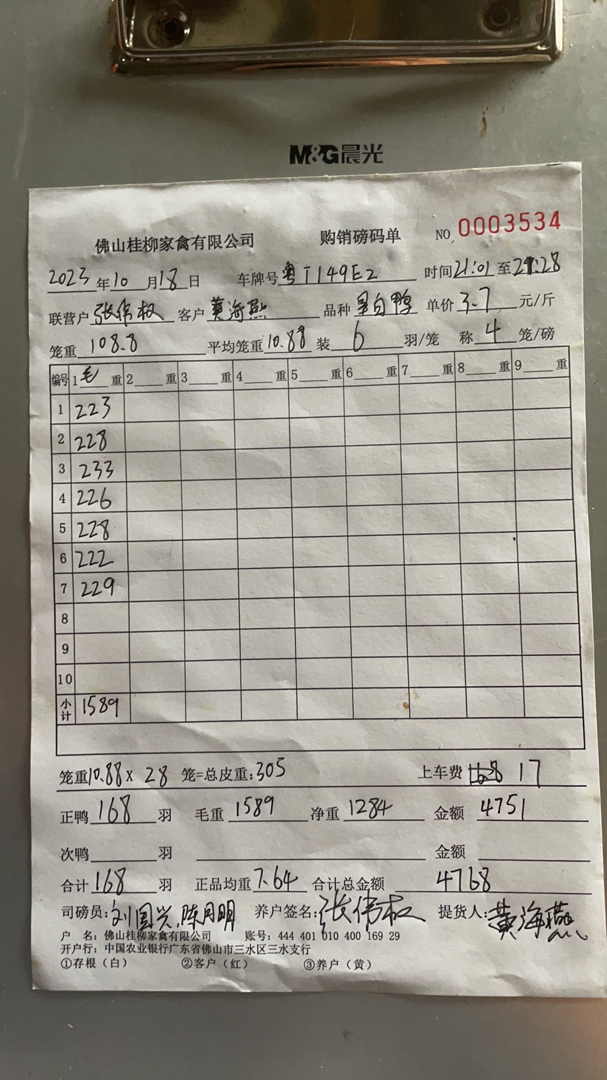 M&G晨光
佛山桂柳家禽有限公司 购销磅码单 NO 0003534
2023年10月18日 车牌号粤T149E2 时间21:01至21:28
联营户张伟权 客户黄海燕 品种黑白鸭 单价3.7元/斤
笼重108.8 平均笼重10.88 装6羽/笼 称4笼/磅
编号 1毛重 2重 3重 4重 5重 6重 7重 8重 9重
1 223
2 228
3 233
4 226
5 228
6 222
7 229
8
9
10
小计 1589
笼重10.88×28笼=总皮重:305 上车费 17
正鸭168羽 毛重1589 净重1284 金额4751
次鸭羽 金额
合计168羽 正品均重7.64 合计总金额4768
司磅员:刘国兴,陈月明 养户签名:张伟权 提货人:黄海燕
户 名:佛山桂柳家禽有限公司 账号:444 401 010 400 169 29
开户行:中国农业银行广东省佛山市三水区三水支行
①存根(白) ②客户(红) ③养户(黄)